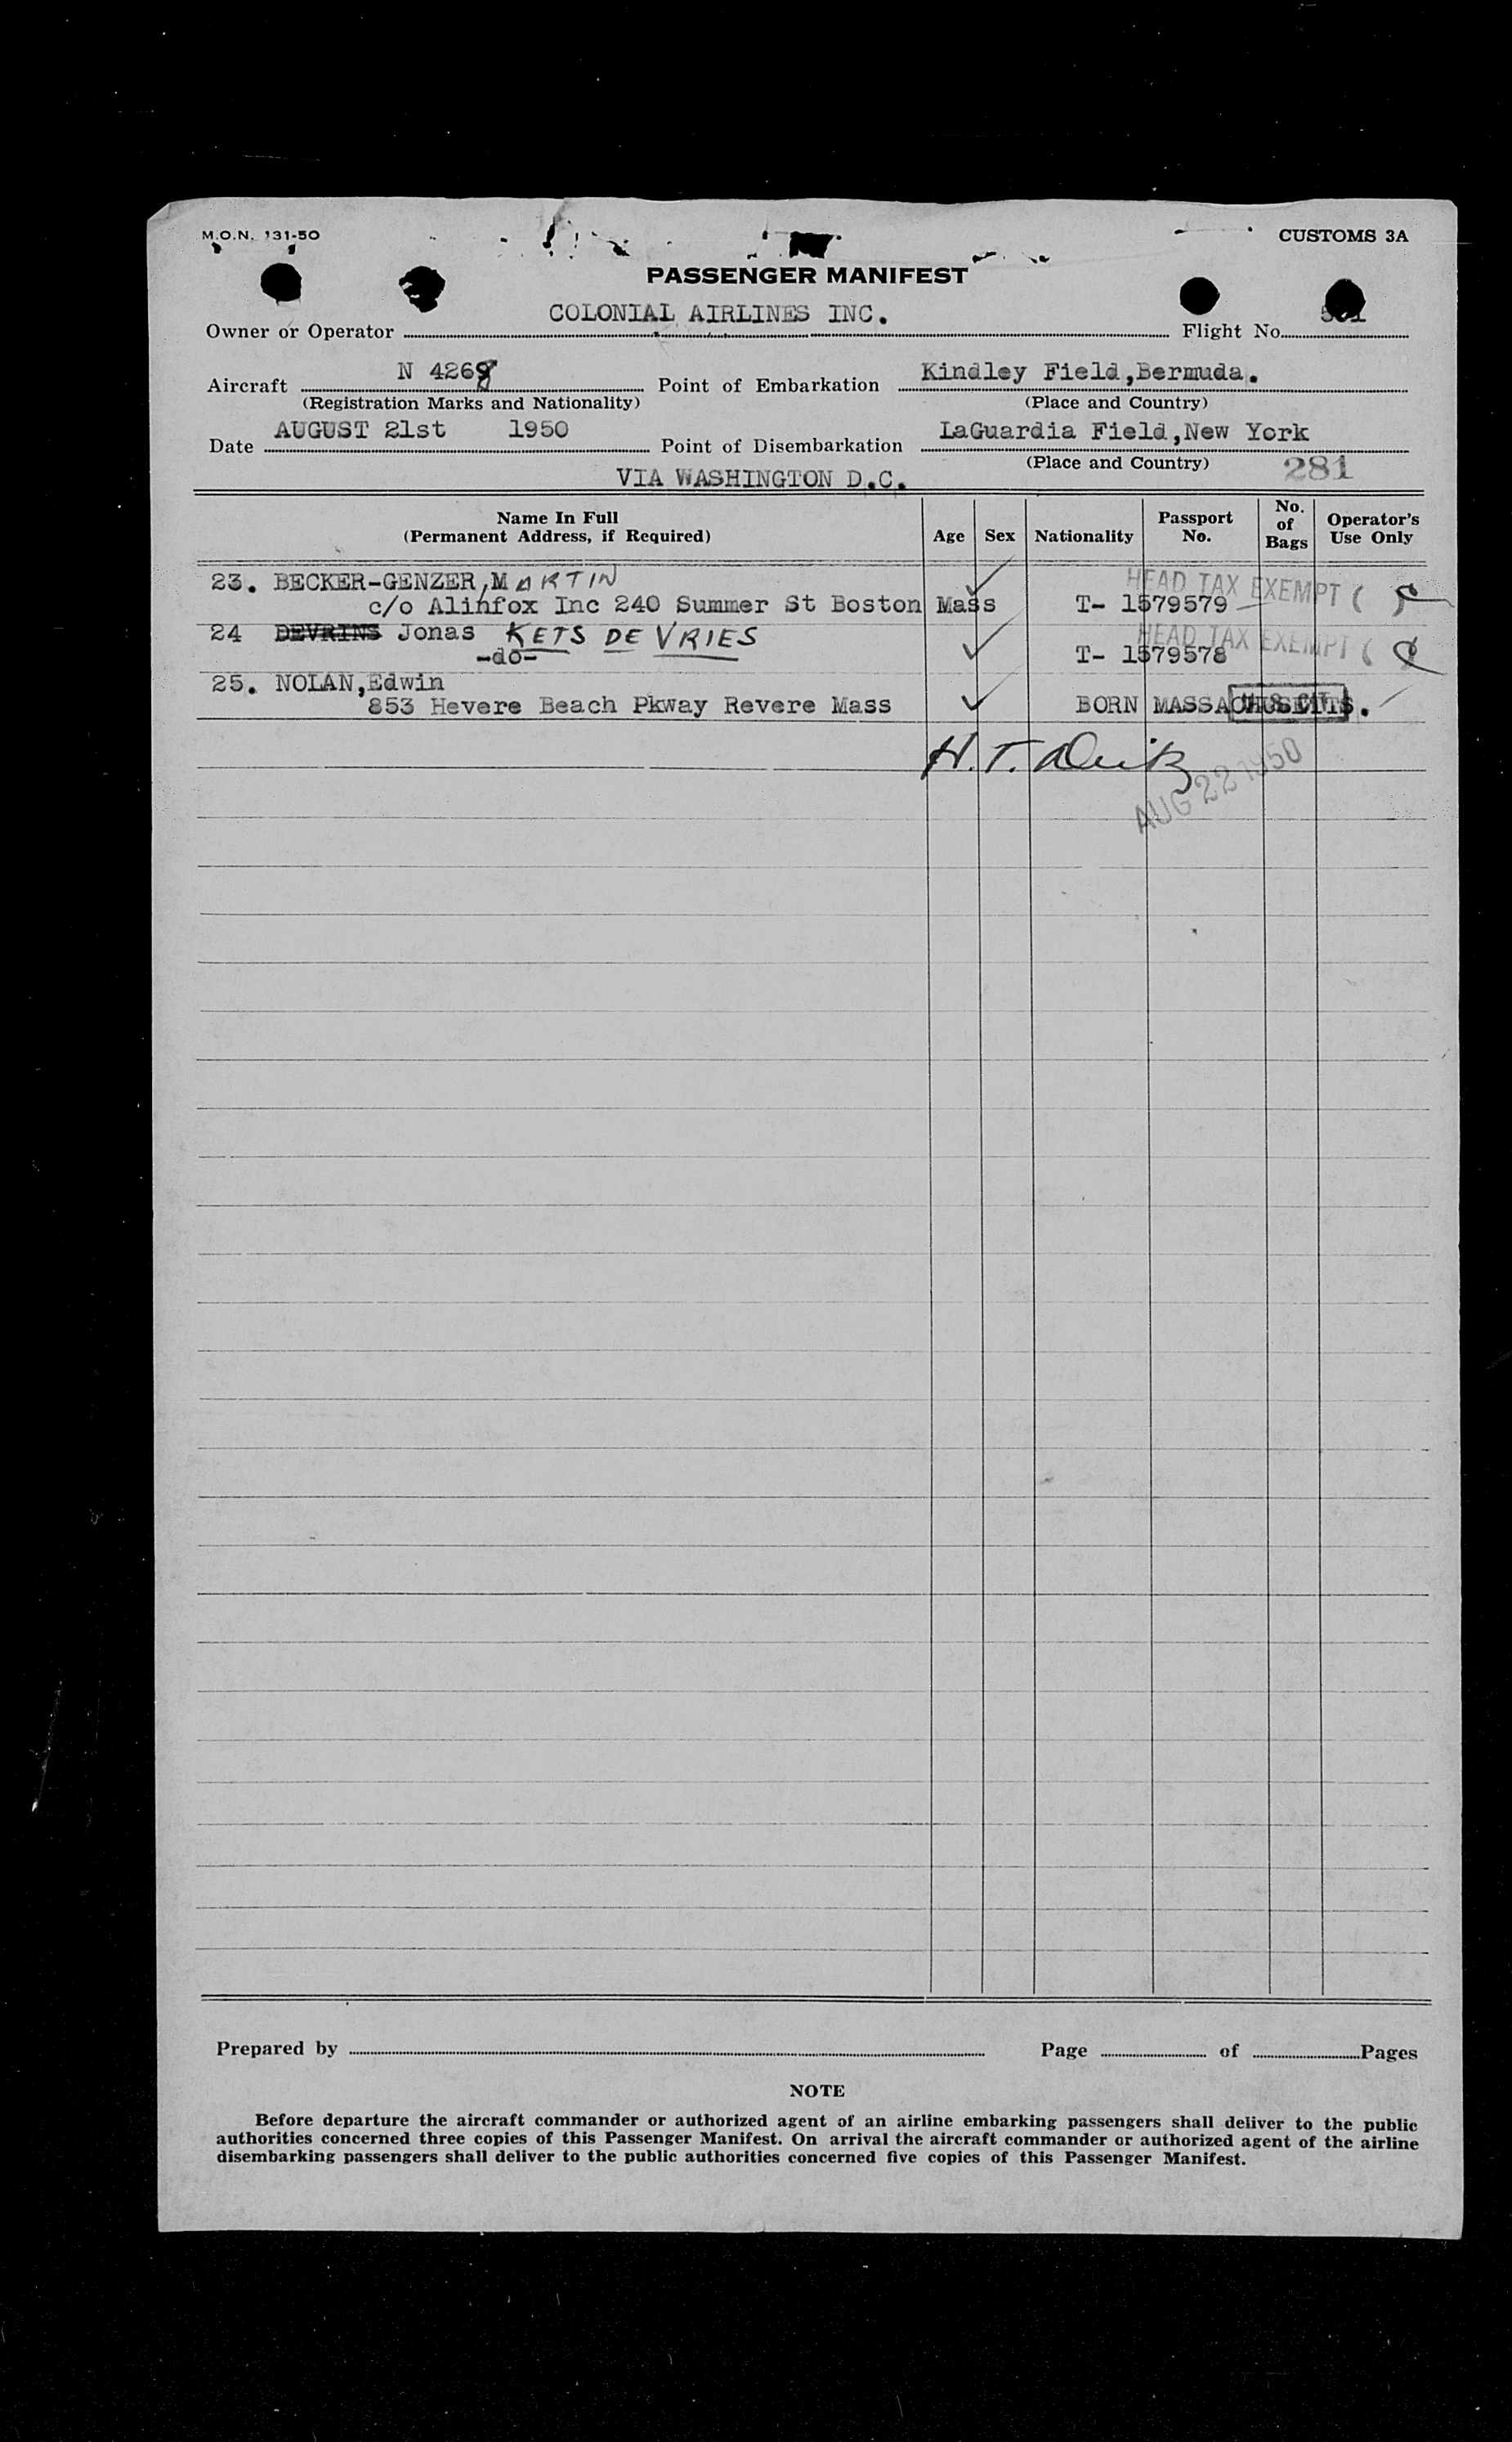 M.O.N. 131-50
CUSTOMS 3A
PASSENGER MANIFEST
Owner or Operator COLONIAL AIRLINES INC. Flight No.
Aircraft N 4268 Point of Embarkation Kindley Field,Bermuda.
(Registration Marks and Nationality) (Place and Country)
Date AUGUST 21st 1950 Point of Disembarkation LaGuardia Field,New York
(Place and Country) 281
VIA WASHINGTON D.C.
Name In Full
(Permanent Address, if Required) Age Sex Nationality Passport No. No. of Bags Operator's Use Only
23. BECKER-GENZER,MARTIN HEAD TAX EXEMPT (
c/o Alinfox Inc 240 Summer St Boston Mass T- 1579579
24 DEVRINS Jonas KETS DE VRIES HEAD TAX EXEMPT (
-do- T- 1579578
25. NOLAN,Edwin
853 Hevere Beach Pkway Revere Mass BORN MASSACHUSETTS.
H.T.
AUG 22 1950
Prepared by Page of Pages
NOTE
Before departure the aircraft commander or authorized agent of an airline embarking passengers shall deliver to the public
authorities concerned three copies of this Passenger Manifest. On arrival the aircraft commander or authorized agent of the airline
disembarking passengers shall deliver to the public authorities concerned five copies of this Passenger Manifest.